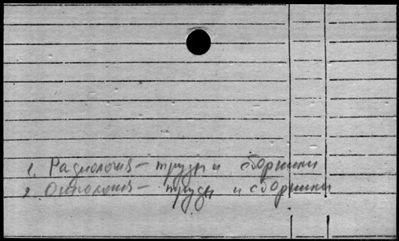 1. Радиология – труды и сборники
2. Онкология – труды и сборники